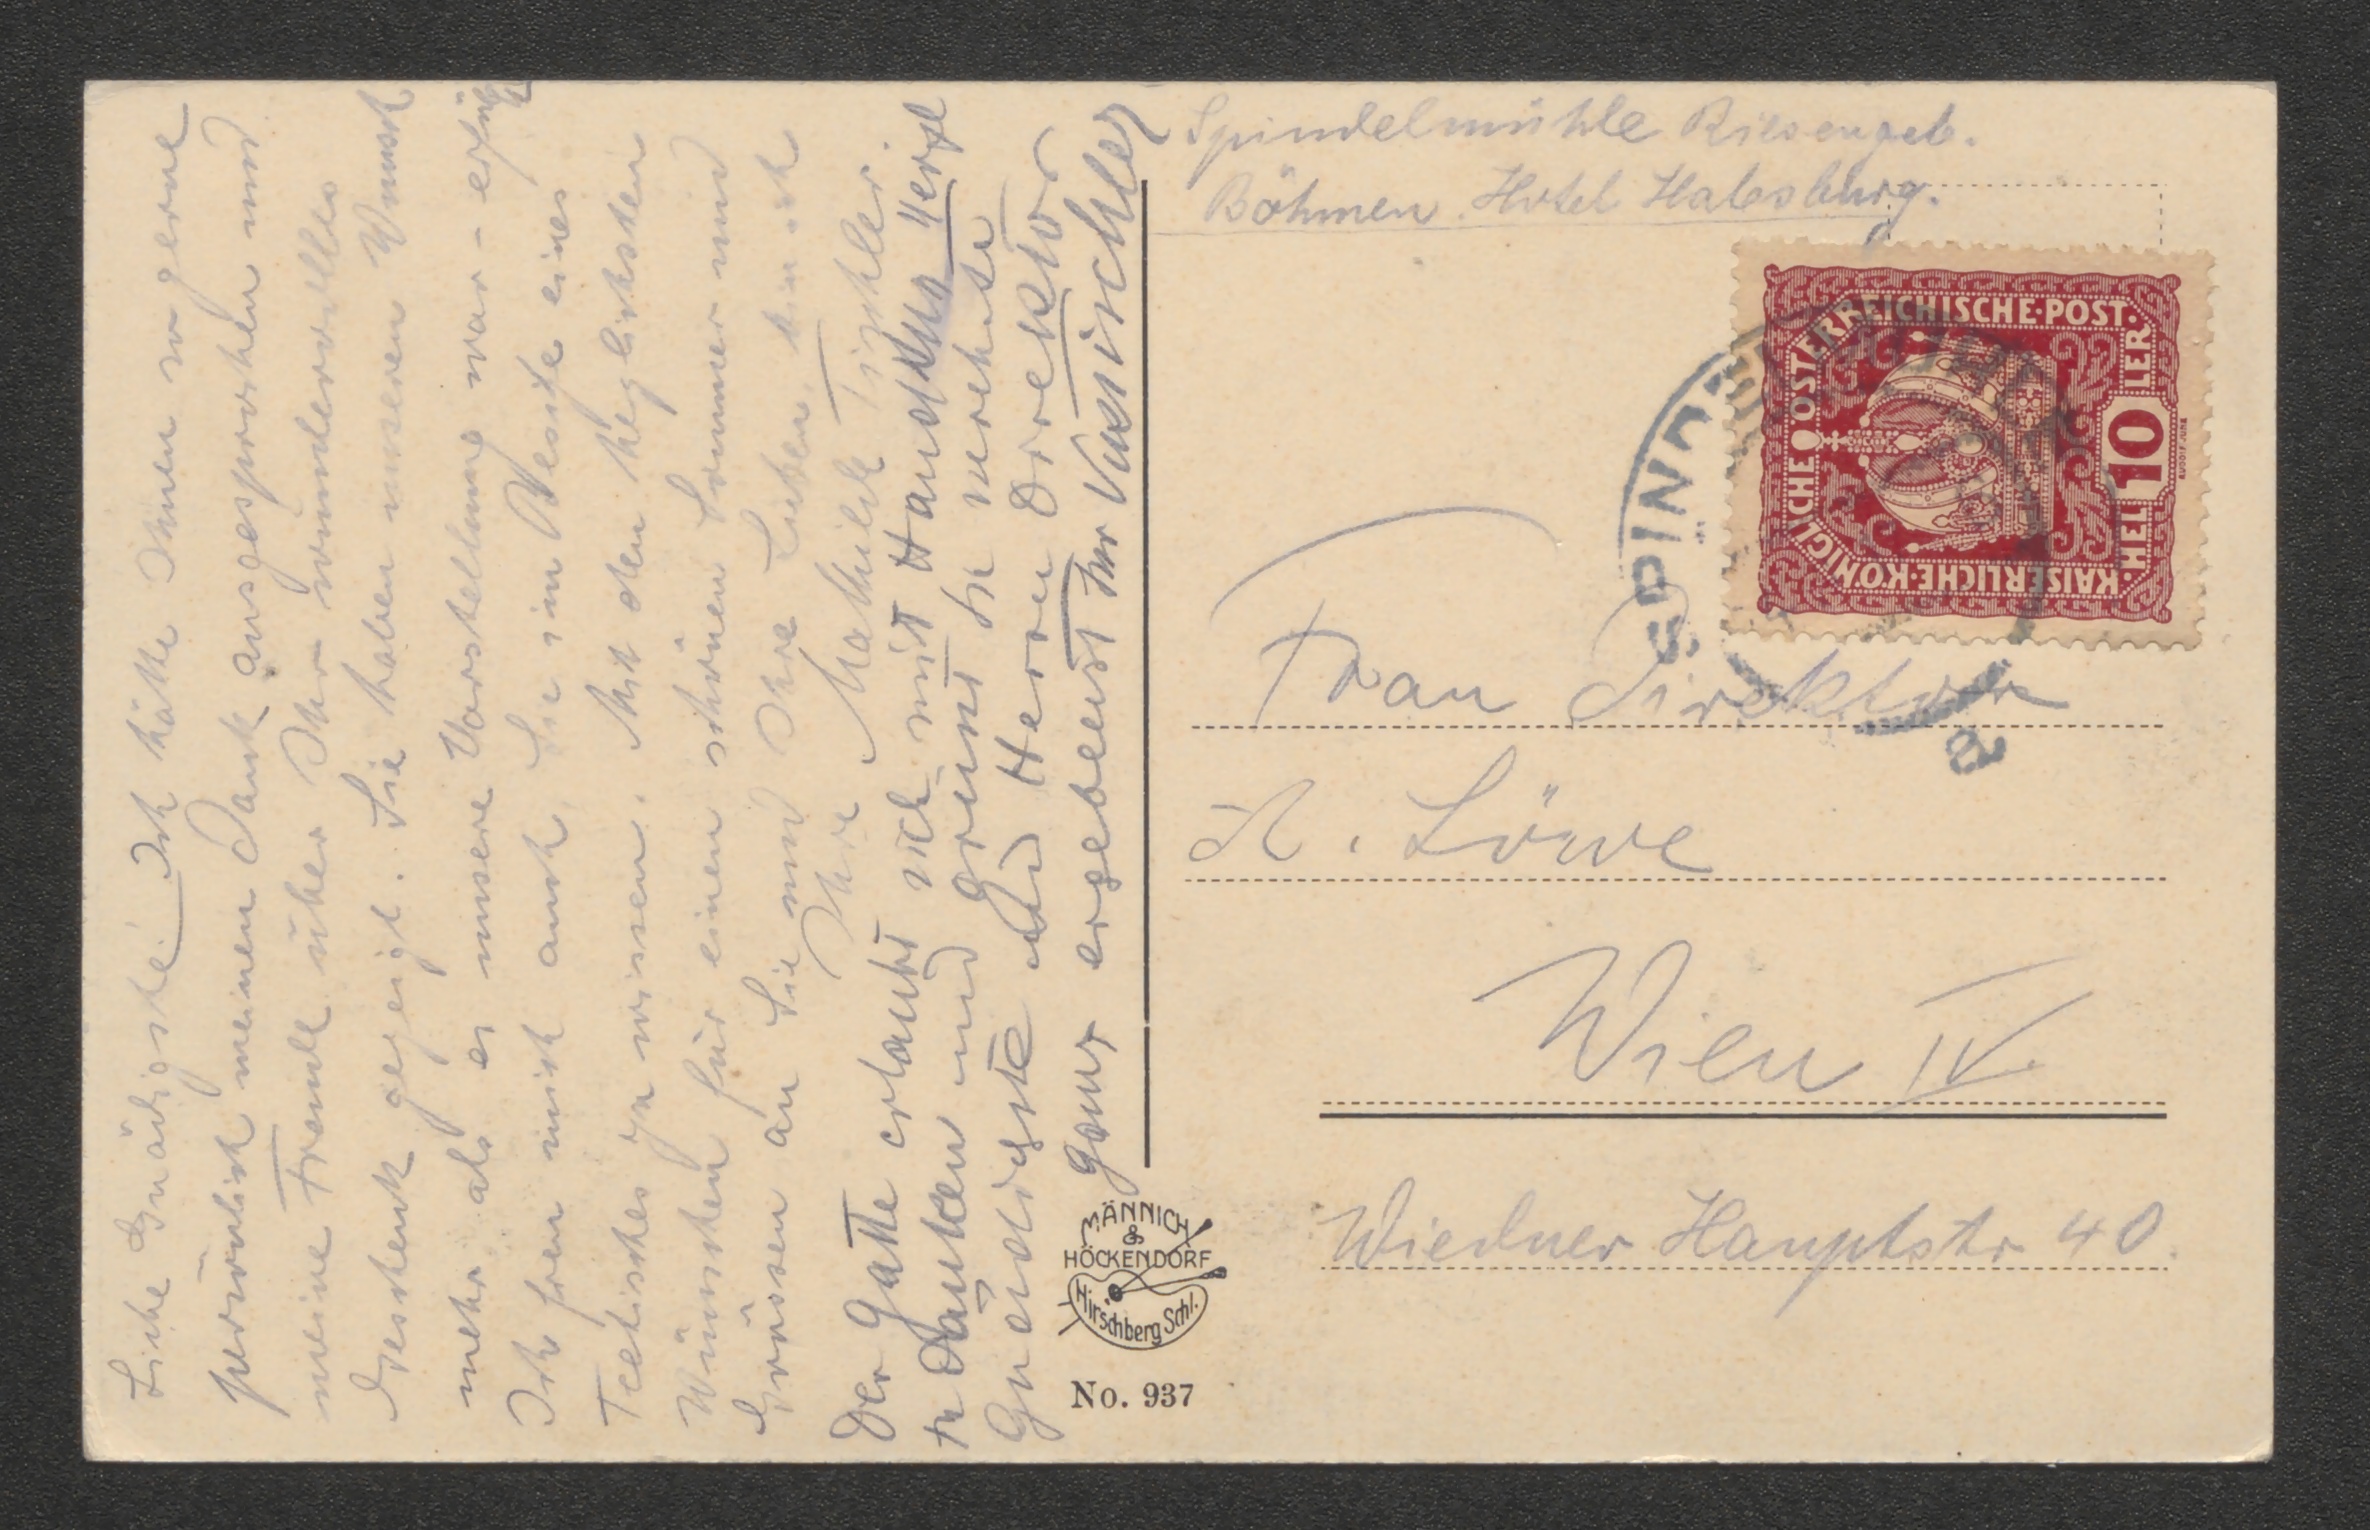 Spindelmühle Riesengeb.
Böhmen. Hotel Habsburg.
KAISERLICHE·KÖNIGLICHE·ÖSTERREICHISCHE·POST·
·HEL 10 LER·
SPINDE
a
Frau Direktor
Löwe
Wien IV.
Wiedner Hauptstr 40.
Liebe Gnädigste! Ich hätte Ihnen so gerne
persönlich meinen Dank ausgesprochen und
meine Freude über Ihr wundervolles
Geschenk gezeigt. Sie haben unseren Wunsch
mehr als es unsere Vorstellung war - erfüllt
Ich freu mich auch, Sie im Besitze eines
Teetisches zu wissen. Mit den herzlichsten
Wünschen für einen schönen Sommer und
Grüssen an Sie und Ihre Lieben, bin ich
Ihre Mathilde
Der Gatte erlaubt sich mit Handkuss Herzl
zu danken und grüsst Sie verehrte
Gnädigste und Herrn Direktor
Ganz ergebenst Ihr
MÄNNICH
&
HÖCKENDORF
Hirschberg Schl.
No. 937